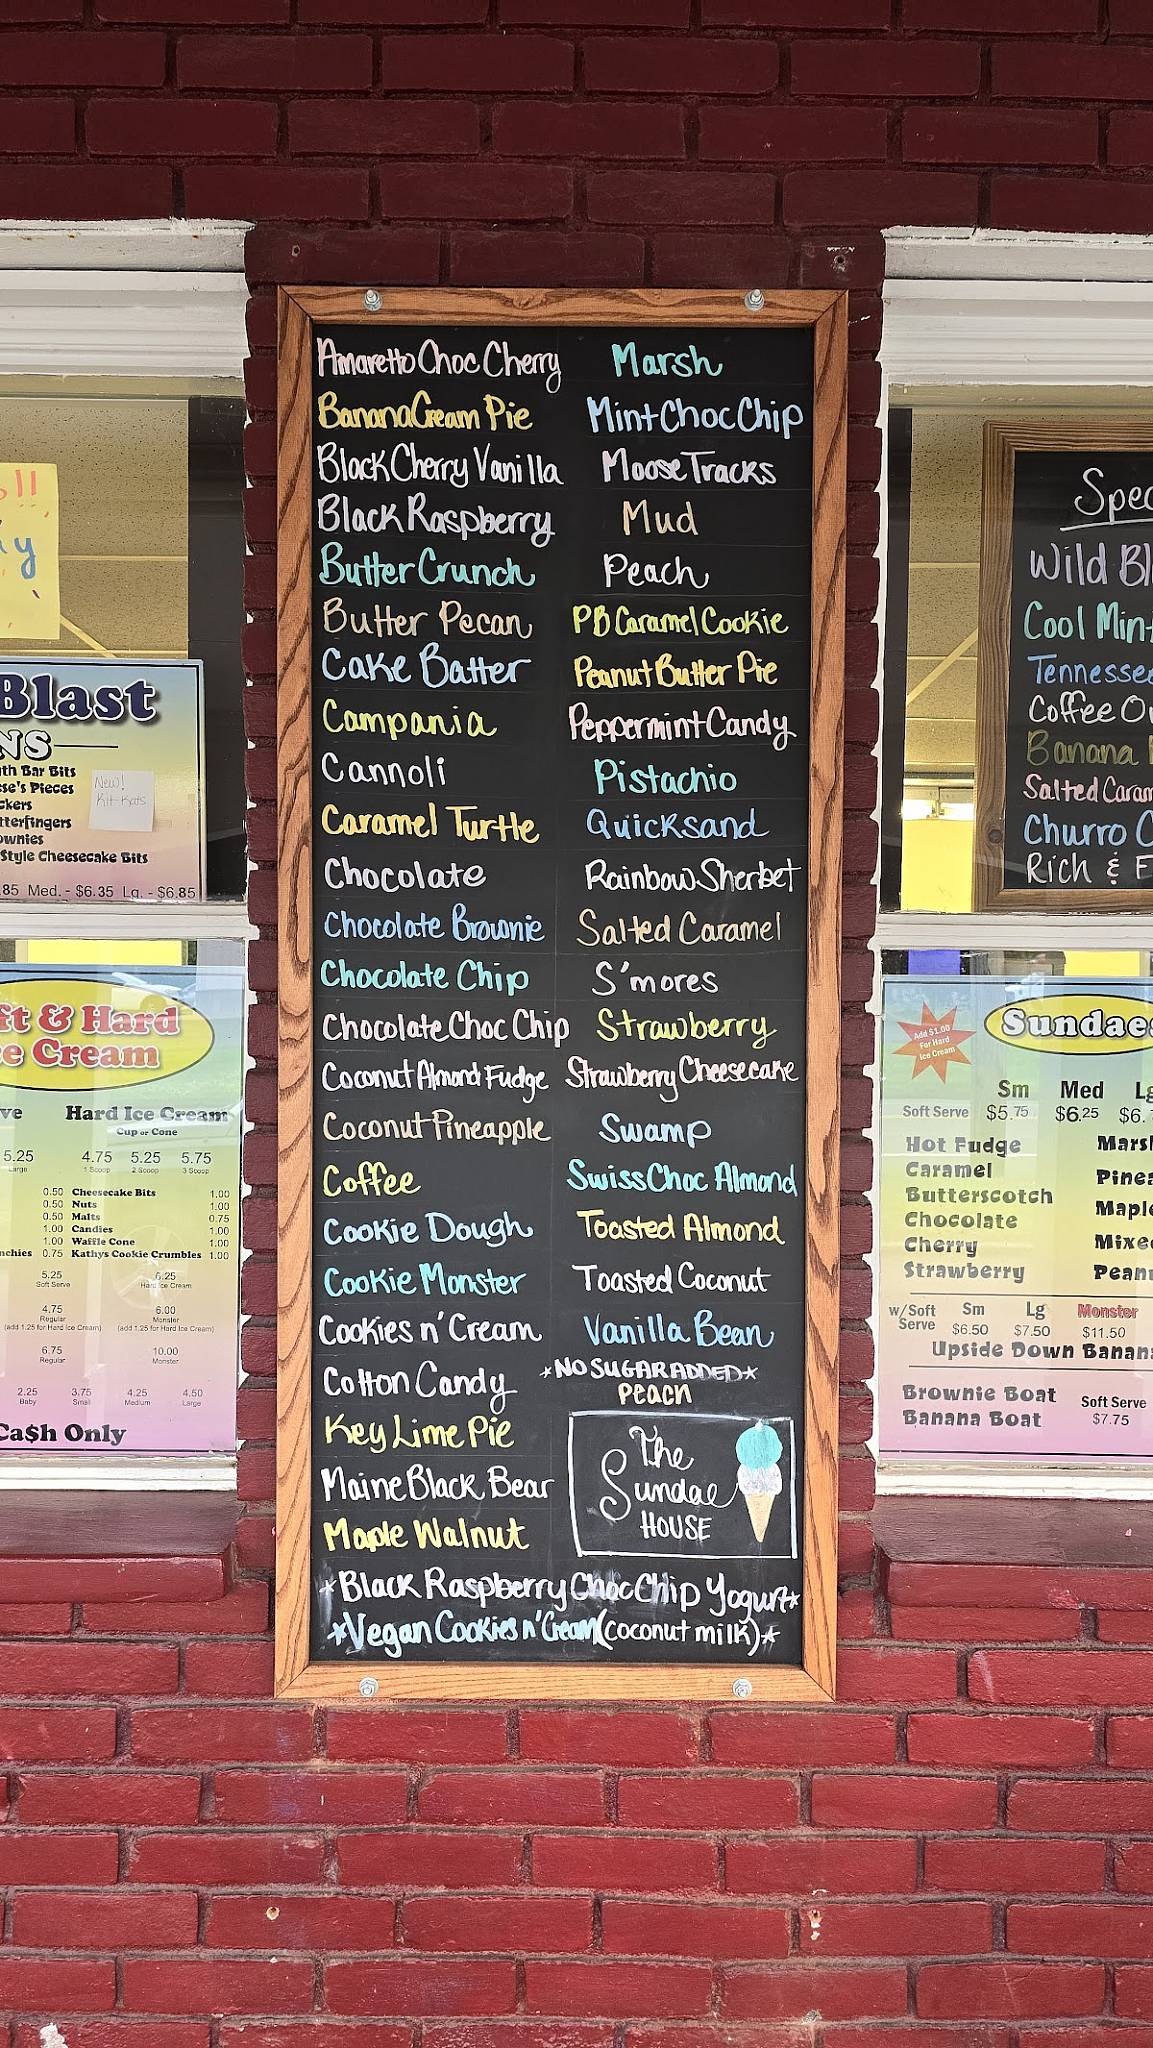 Amaretto Choc Cherry
Banana Cream Pie
Black Cherry Vanilla
Black Raspberry
Butter Crunch
Butter Pecan
Cake Batter
Campania
Cannoli
Caramel Turtle
Chocolate
Chocolate Brownie
Chocolate Chip
Chocolate Choc Chip
Coconut Almond Fudge
Coconut Pineapple
Coffee
Cookie Dough
Cookie Monster
Cookies n' Cream
Cotton Candy
Key Lime Pie
Maine Black Bear
Maple Walnut
Marsh
Mint Choc Chip
Moose Tracks
Mud
Peach
PB Caramel Cookie
Peanut Butter Pie
Peppermint Candy
Pistachio
Quicksand
Rainbow Sherbet
Salted Caramel
S'mores
Strawberry
Strawberry Cheesecake
Swamp
Swiss Choc Almond
Toasted Almond
Toasted Coconut
Vanilla Bean
*NO SUGAR ADDED*
PEACH
The
Sundae
HOUSE
*Black Raspberry Choc Chip Yogurt*
*Vegan Cookies n' Cream (coconut milk)*
Blast
NS
th Bar Bits
se's Pieces
ckers
tterfingers
ownies
Style Cheesecake Bits
New!
Kit-Kats
.85 Med. - $6.35 Lg. - $6.85
ft & Hard
e Cream
ve Hard Ice Cream
Cup or Cone
5.25 4.75 5.25 5.75
Large 1 Scoop 2 Scoop 3 Scoop
0.50 Cheesecake Bits 1.00
0.50 Nuts 1.00
0.50 Malts 0.75
1.00 Candies 1.00
1.00 Waffle Cone 1.00
nchies 0.75 Kathys Cookie Crumbles 1.00
5.25 6.25
Soft Serve Hard Ice Cream
4.75 6.00
Regular Monster
(add 1.25 for Hard Ice Cream) (add 1.25 for Hard Ice Cream)
6.75 10.00
Regular Monster
2.25 3.75 4.25 4.50
Baby Small Medium Large
Ca$h Only
Spec
Wild Bl
Cool Mint
Tennessee
Coffee Or
Banana
Salted Caram
Churro C
Rich & F
Add $1.00
For Hard
Ice Cream
Sundaes
Sm Med Lg
Soft Serve $5.75 $6.25 $6.
Hot Fudge Marsh
Caramel Pinea
Butterscotch Maple
Chocolate
Cherry Mixed
Strawberry Peanu
w/Soft Serve Sm Lg Monster
$6.50 $7.50 $11.50
Upside Down Banan
Brownie Boat Soft Serve
Banana Boat $7.75